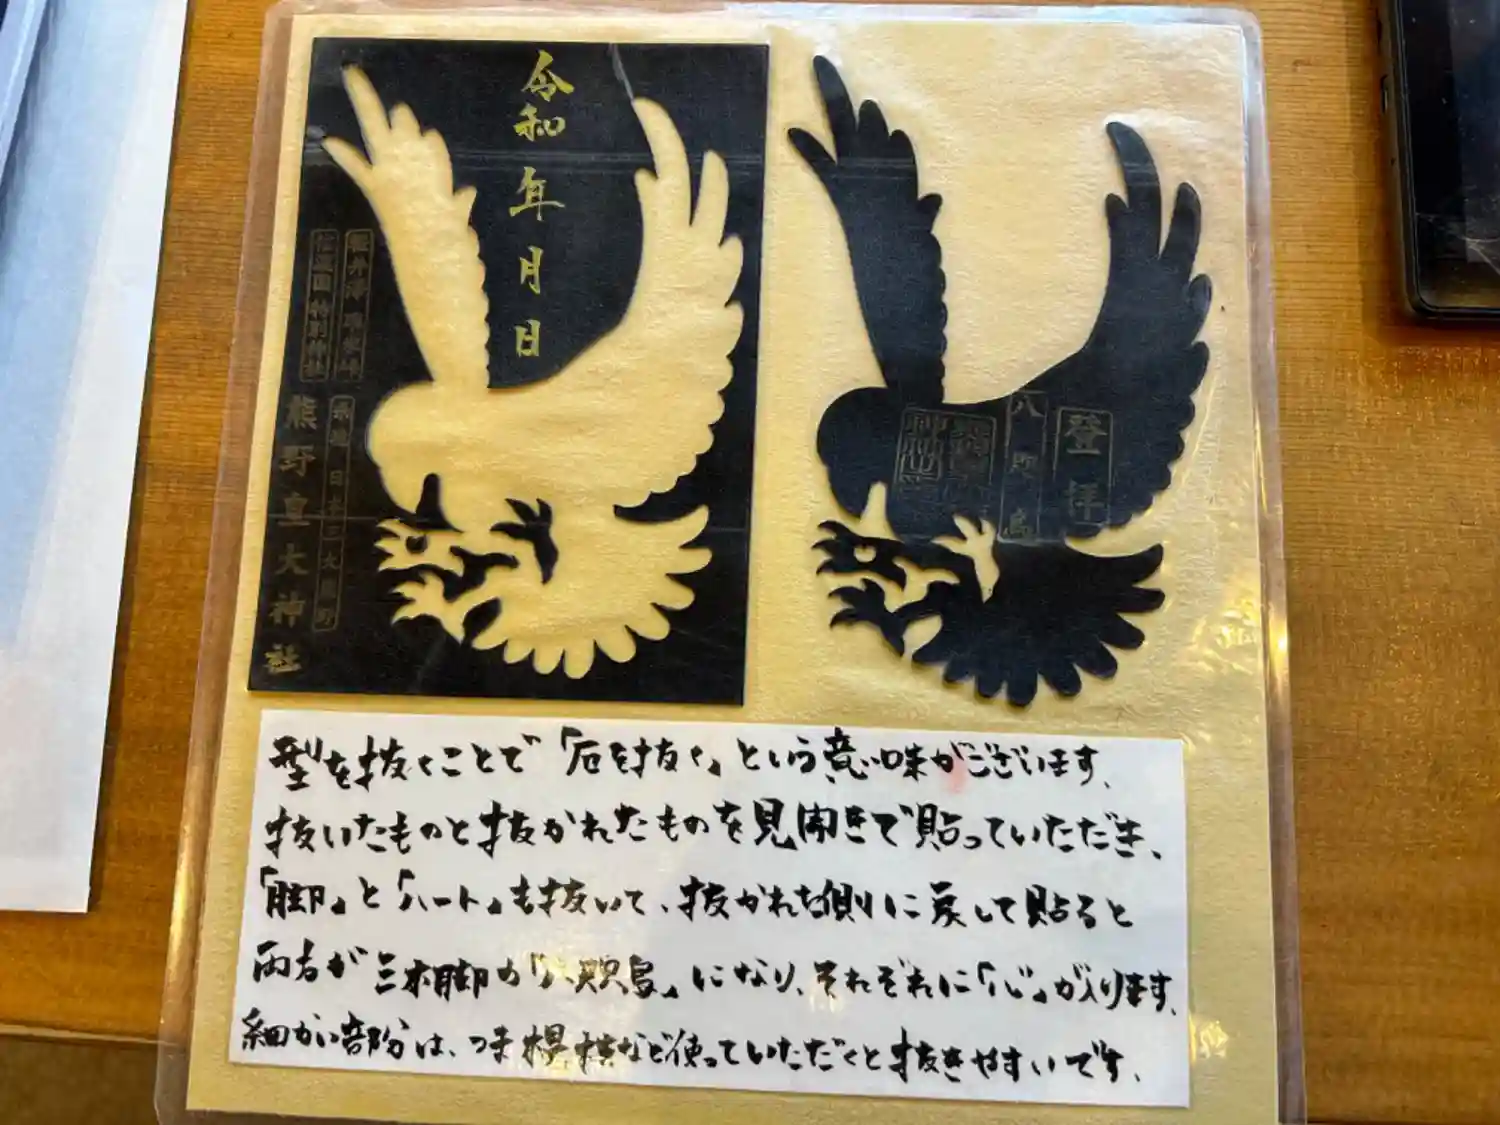 令和 年 月 日
軽井沢 碓氷峠
信濃国 特別神社
飛地 日本三大熊野
熊野皇大神社
登拝
八咫烏
型を抜くことで「厄を抜く」という意味がございます、
抜いたものと抜かれたものを見開きで貼っていただき、
「脚」と「ハート」も抜いて、抜かれた側に戻して貼ると
両者が三本脚の「八咫烏」になり、それぞれに「心」が入ります。
細かい部分は、つま楊枝など使っていただくと抜きやすいです、